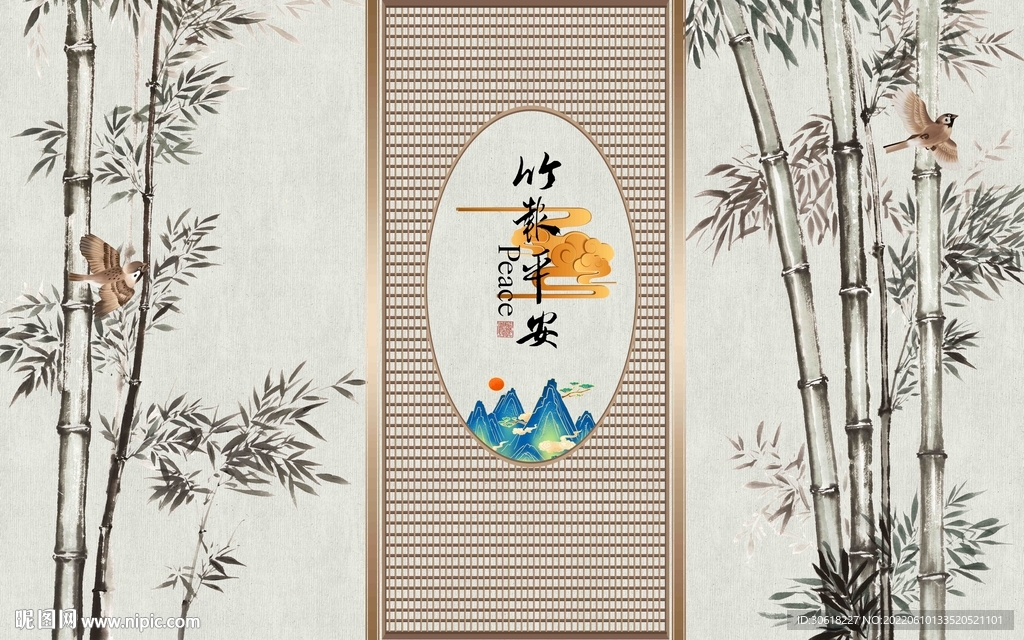 竹報平安
Peace
昵图网 www.nipic.com
ID:30618227 NO:20220610133520521101